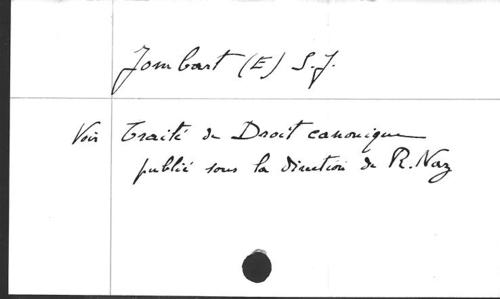 Jombart (E) S.J.
Voir Traité de Droit canonique
publié sous la direction de R. Naz